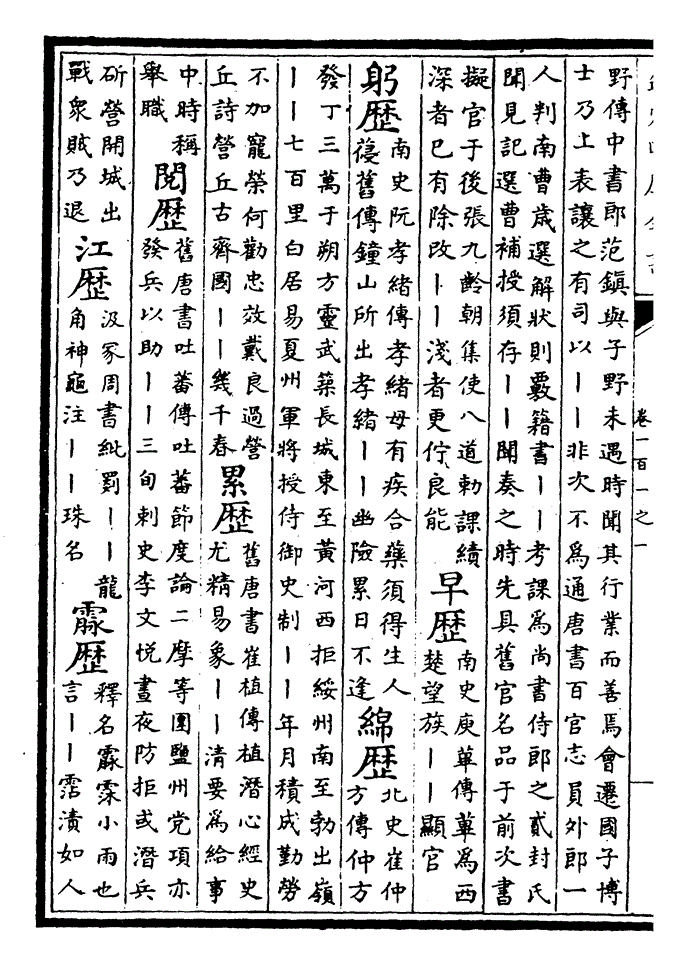 野傳中書郎范鎮與子野未遇時聞其行業而善焉會遷國子博
士乃上表讓之有司以丨丨非次不爲通唐書百官志員外郎一
人判南曹歲選解狀則覈籍書丨丨考課爲尚書侍郎之貳封氏
聞見記選曹補授須存丨丨聞奏之時先具舊官名品于前次書
擬官于後張九齡朝集使八道勅課績
深者已有除改丨丨淺者更佇良能
早歴
南史庾蓽傳蓽爲西
楚望族丨丨顯官
躬歴
南史阮孝緒傳孝緒母有疾合藥須得生人
葠舊傳鐘山所出孝緒丨丨幽險累日不逢
綿歴
北史崔仲
方傳仲方
發丁三萬于朔方靈武築長城東至黃河西拒綏州南至勃出嶺
丨丨七百里白居易夏州軍將授侍御史制丨丨年月積成勤勞
不加寵榮何勸忠效戴良過營
丘詩營丘古齊國丨丨幾千春
累歴
舊唐書崔植傳植潛心經史
尤精易象丨丨清要爲給事
中時稱
舉職
閱歴
舊唐書吐蕃傳吐蕃節度論二摩等圍鹽州党項亦
發兵以助丨丨三旬刺史李文悅晝夜防拒或潛兵
斫營開城出
戰衆賊乃退
江歴
汲冢周書紕罰丨丨龍
角神龜注丨丨珠名
霡歴
釋名霡霂小雨也
言丨丨霑漬如人
卷一百一之一